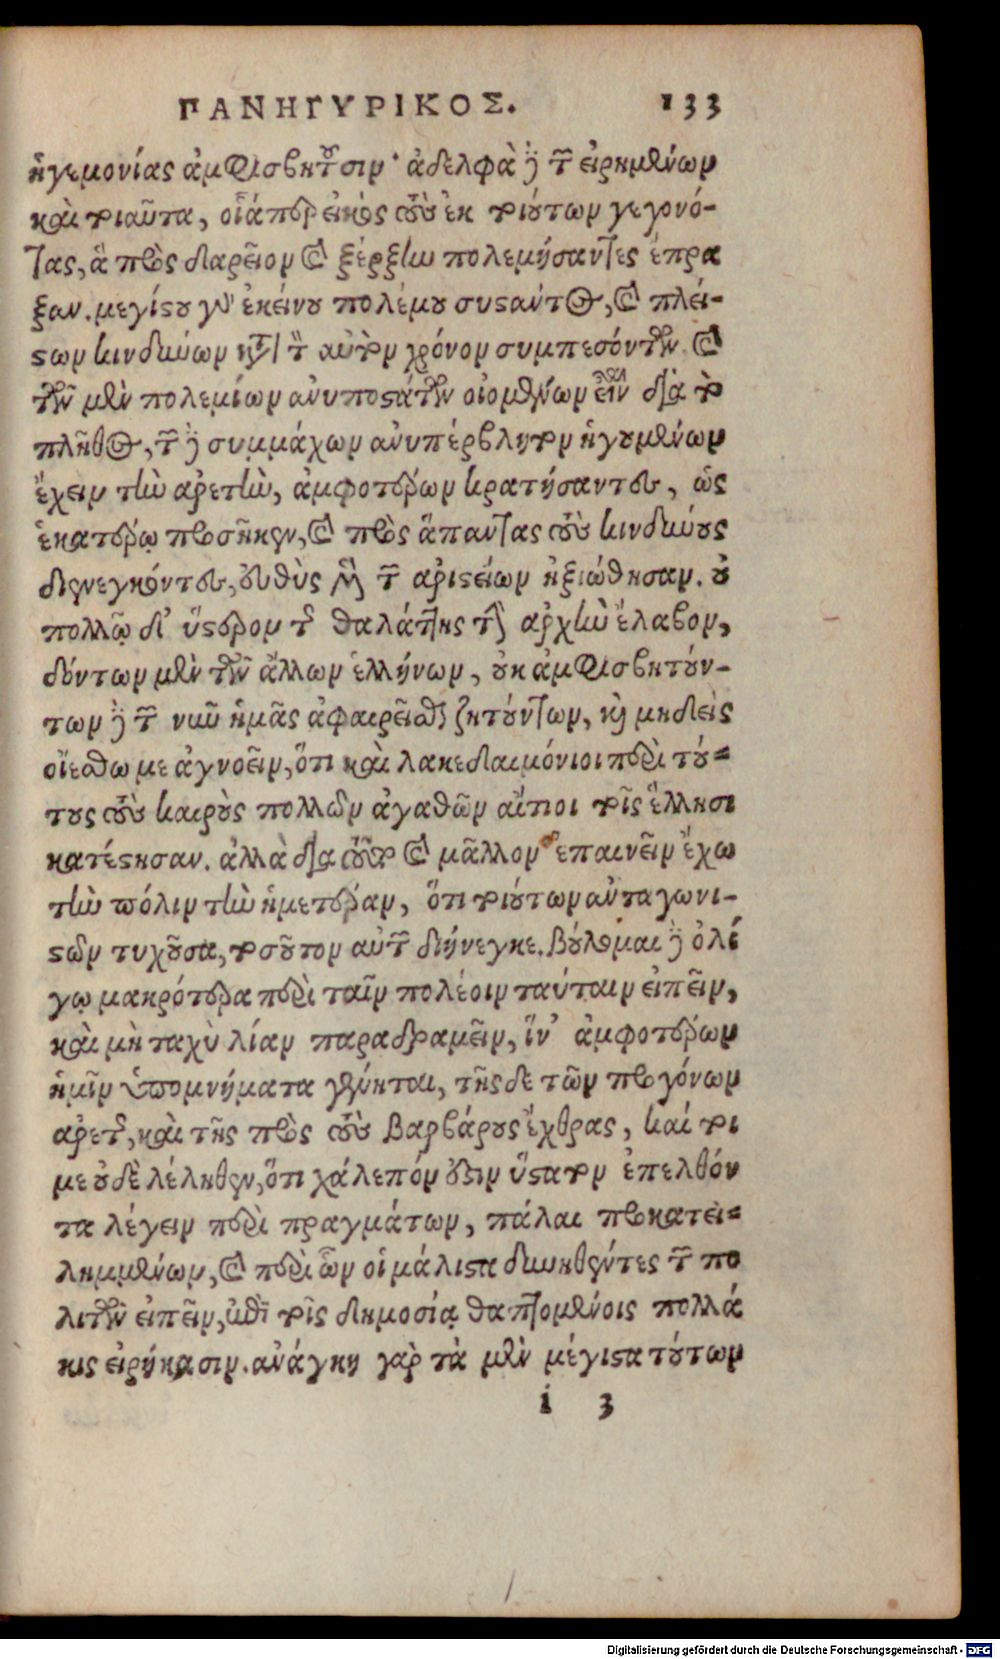 ΠΑΝΗΓΥΡΙΚΟΣ. 133
ἡγεμονίας ἀμφισβητοῦσιν· ἀδελφὰ δὲ τῶν εἰρημένων
καὶ τοιαῦτα, οἷά περ εἰκὸς τοὺς ἐκ τούτων γεγονό-
τας, ἃ πρὸς δαρεῖον καὶ ξέρξην πολεμήσαντες ἔπρα
ξαν. μεγίστου γὰρ ἐκείνου πολέμου συστάντος, καὶ πλεί-
στων κινδύνων κατὰ τὸν αὐτὸν χρόνον συμπεσόντων. καὶ
τῶν μὲν πολεμίων ἀνυποστάτων οἰομένων εἶναι διὰ τὸ
πλῆθος, τῶν δὲ συμμάχων ἀνυπέρβλητον ἡγουμένων
ἔχειν τὴν ἀρετὴν, ἀμφοτέρων κρατήσαντες, ὡς
ἑκατέρῳ προσῆκεν, καὶ πρὸς ἅπαντας τοὺς κινδύνους
διενεγκόντες, εὐθὺς μὲν τῶν ἀριστείων ἠξιώθησαν. οὐ
πολλῷ δ' ὕστερον τῆς θαλάττης τὴν ἀρχὴν ἔλαβον,
δόντων μὲν τῶν ἄλλων ἑλλήνων, οὐκ ἀμφισβητούν-
των δὲ τῶν νῦν ἡμᾶς ἀφαιρεῖσθαι ζητούντων, καὶ μηδεὶς
οἰέσθω με ἀγνοεῖν, ὅτι καὶ λακεδαιμόνιοι περὶ τού-
τους τοὺς καιροὺς πολλῶν ἀγαθῶν αἴτιοι τοῖς ἕλλησι
κατέστησαν. ἀλλὰ διὰ τοῦτο καὶ μᾶλλον ἐπαινεῖν ἔχω
τὴν πόλιν τὴν ἡμετέραν, ὅτι τοιούτων ἀνταγωνι-
στῶν τυχοῦσα, τοσοῦτον αὐτῶν διήνεγκε. βούλομαι δὲ ὀλί
γῳ μακρότερα περὶ ταῖν πολέοιν ταύταιν εἰπεῖν,
καὶ μὴ ταχὺ λίαν παραδραμεῖν, ἵν' ἀμφοτέρων
ἡμῖν ὑπομνήματα γένηται, τῆς δε τῶν προγόνων
ἀρετῆς, καὶ τῆς πρὸς τοὺς βαρβάρους ἔχθρας, καί τοι
με οὐδὲ λέληθεν, ὅτι χάλεπόν ἐστιν ὕστατον ἐπελθόν
τα λέγειν περὶ πραγμάτων, πάλαι προκατει-
λημμένων, καὶ περὶ ὧν οἱ μάλιστα δυνηθέντες τῶν πο
λιτῶν εἰπεῖν, ἐπὶ τοῖς δημοσίᾳ θαπτομένοις πολλά
κις εἰρήκασιν. ἀνάγκη γὰρ τὰ μὲν μέγιστα τούτων
i 3
Digitalisierung gefördert durch die Deutsche Forschungsgemeinschaft - DFG